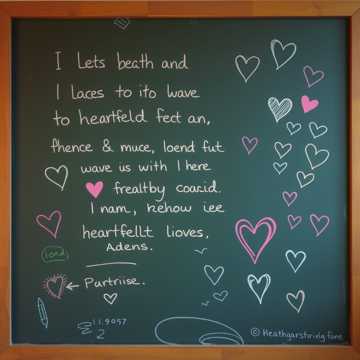 I Lets beath and
I laces to ito wave
to heartfeld fect an,
fhence & muce, loend fut
wave is with I here
frealtby coarid.
I nam, kehow iee
heartfellt lioves,
Adens.
← Purtriise.
11.9057
2
© Heathgarstriring fone